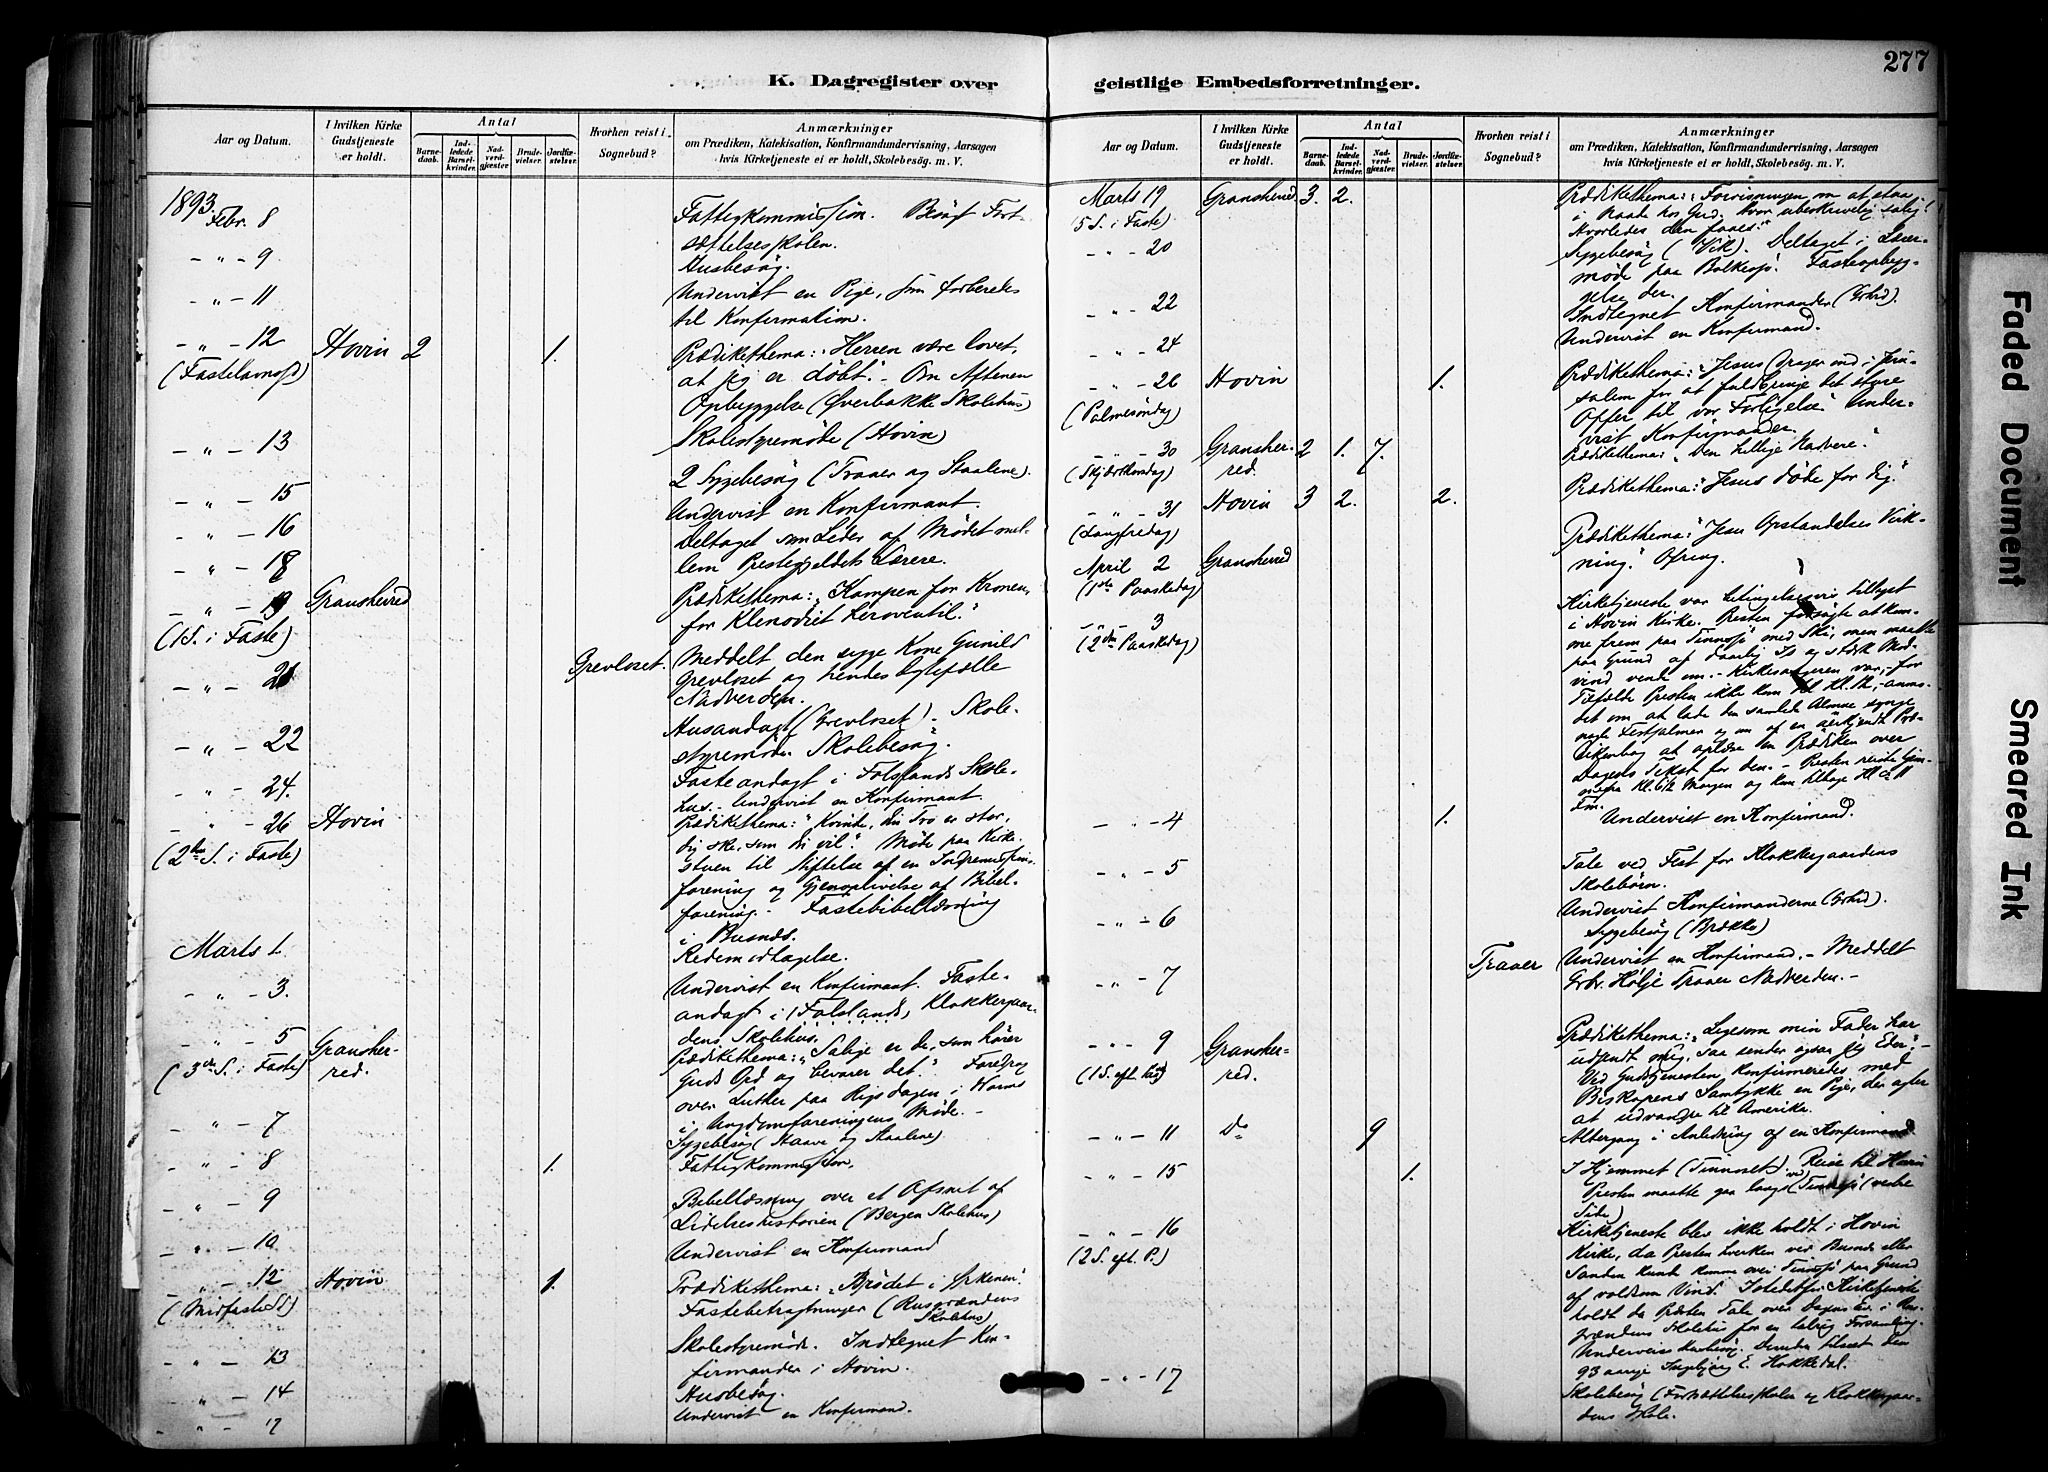 277
K. Dagregister over geistlige Embedsforretninger.
Aar og Datum. I hvilken Kirke Gudstjeneste er holdt. Antal Barnedaab. Indledede Barselkvinder. Nadverdgjæster Brudevielser. Jordfæstelser. Hvorhen reist i Sognebud? Anmærkninger om Prædiken, Katekisation, Konfirmandundervisning, Aarsagen hvis Kirketjeneste ei er holdt, Skolebesög. m. V.
1893.
Febr. 8 Fattigkommission. Besøgt Fort-
sættelsesskolen.
- " - 9 Husbesøg.
- " - 11 Undervist en Pige, som forberedes
til Konfirmation.
- " - 12 Hovin 2 1. Prædikethema: "Herren være lovet,
(Fastelavnsd) at jeg er døbt". - Om Aftenen
Opbyggelse (Øverbakke Skolehus)
- " - 13 Skolestyremøde (Hovin)
2 Sygebesøg (Traaer og Staalene).
- " - 15 Undervist en Konfirmant.
- " - 16 Deltaget som Leder af Mødet mel-
- " - 18 lem Prestegjeldets Lærere.
- " - 19 Gransherred Prædikethema: "Kampen for Kronen,
(1 S. i Faste) for Klenodiet heroventil."
- " - 21 Grevloset. Meddelt den syge Kone Gunild
Grevloset og hendes Ægtefælle
Nadverden.
- " - 22 Husandagt (Grevloset). Skole-
styremøde. Skolebesøg.
- " - 24. Fasteandagt i Folslands Skole-
hus. - Undervist en Konfirmant
- " - 26 Hovin Prædikethema: "Kvinde, din Tro er stor,
(2den S. i Faste) dig ske, som du vil". Møde paa Kirke-
stuen til Stiftelse af en Indremissions-
forening og Gjenoplivelse af Bibel-
forening. - Fastebibellæsning
i Busnes.
Marts 1. Redemodtagelse.
- " - 3. Undervist en Konfirmant. Faste-
andagt i Folslands, Klokkergaar-
dens Skolehus.
- " - 5 Gransher- Prædikethema: "Salige er de, som hører
(3die S. i Faste) red. Guds Ord og bevarer det." Foredrag
over Luther paa Rigsdagen i Worms
i Ungdomsforeningens Møde. -
- " - 7 Sygebesøg (Haave og Staalene)
- " - 8 1. Fattigkommission.
- " - 9 Bibellæsning over et Afsnit af
Lidelseshistorien (Bergen Skolehus)
- " - 10 Undervist en Konfirmand
- " - 12 Hovin 1. Prædikethema: "Brødet i Ørkenen".
(Midfaste S.) Fastebetragtninger (Rusgrændens
Skolehus)
- " - 13 Skolestyremøde. Indtegnet Kon-
firmander i Hovin.
- " - 14 Husbesøg.
- " - 17 Undervist en Konfirmand.
Aar og Datum. I hvilken Kirke Gudstjeneste er holdt. Antal Barnedaab. Indledede Barselkvinder. Nadverdgjæster Brudevielser. Jordfæstelser. Hvorhen reist i Sognebud? Anmærkninger om Prædiken, Katekisation, Konfirmandundervisning, Aarsagen hvis Kirketjeneste ei er holdt, Skolebesög. m. V.
Marts 19 Gransherred 3. 2. Prædikethema: "Forvisningen om at staa
(5 S. i Faste) i Naade hos Gud. Hvor ubeskrivelig salig!
Hvorledes den faaes."
- " - 20 Sygebesøg (Vik). Deltaget i Lærer-
møde paa Bolkesjø. Fasteopbyg-
gelse der.
- " - 22 Indtegnet Konfirmander (Grhrd).
- " - 24 Undervist en Konfirmand.
- " - 26 Hovin 1. Prædikethema: "Jesus drager ind i Jeru-
(Palmesøndag) salem for at fuldbringe det store
Offer til vor Forligelse". Under-
vist Konfirmander.
- " - 30 Gransher- 2 1. 7. Prædikethema: "Den hellige Nadvere."
(Skjærthorsdag) red.
- " - 31 Hovin 3 2. 2. Prædikethema: "Jesus døde for dig."
(Langfredag)
April 2 Gransherred Prædikethema: "Jesu Opstandelses Virk-
(1ste Paaskedag) ning." Ofring.
- " - 3 Kirketjeneste var betingelsesvis tillyst
(2den Paaskedag) i Hovin Kirke. Presten forsøgte at kom-
me frem paa Tinnosjø med Ski, men maatte
paa Grund af daarlig Is og stærk Mod-
vind vende om. - Kirkesangeren var, for
Tilfælde Presten ikke kom til Kl. 12, anmo-
det om at lade den samlede Almue synge
nogle Festsalmer og om af en anerkjendt Præ-
dikenbog at oplæse en Prædiken over
Dagens Tekst for den. - Presten reiste
Kl. 6½ Morgen og kom tilbage Kl. 11
Fm.
- " - 4 1. Undervist en Konfirmand.
- " - 5 Tale ved Fest for Klokkergaardens
Skolebørn.
- " - 6 Undervist Konfirmanderne (Grhrd).
Sygebesøg (Brække)
- " - 7 Traaer Undervist en Konfirmand. - Meddelt
Gbr. Hølje Traaer Nadverden. -
- " - 9 Gransher- Prædikethema: "Ligesom min Fader har
(1 S. eft. Paaske) red. udsendt mig, saa sender ogsaa jeg Eder". -
Ved Gudstjenesten konfirmeredes med
Biskopens Samtykke en Pige, der agter
at udvandre til Amerika.
- " - 11 Do 9 Altergang i Anledning af en Konfirmand
- " - 15 1. I Hjemmet (Tinnoset) ved Reise til Hovin
Presten maatte gaa langs Tinnosjø (vestre
Side)
- " - 16 Kirketjeneste blev ikke holdt i Hovin
(2 S. eft. P.) Kirke, da Presten hverken ved Busnes eller
Sanden kunde komme over Tinnosjø paa Grund
af voldsom Vind. Istedetfor Kirketjeneste
holdt da Presten Tale over Dagens Ev. i Rus-
grændens Skolehus for en talrig Forsamling.
Underveis Husbesøg. Derunder hilset den
93 aarige Ingebjørg E. Hakkedal.
- " - 17 Skolebesøg (Fortsættelsesskolen og Klokkergaar-
dens Skole.
Faded Document
Smeared Ink